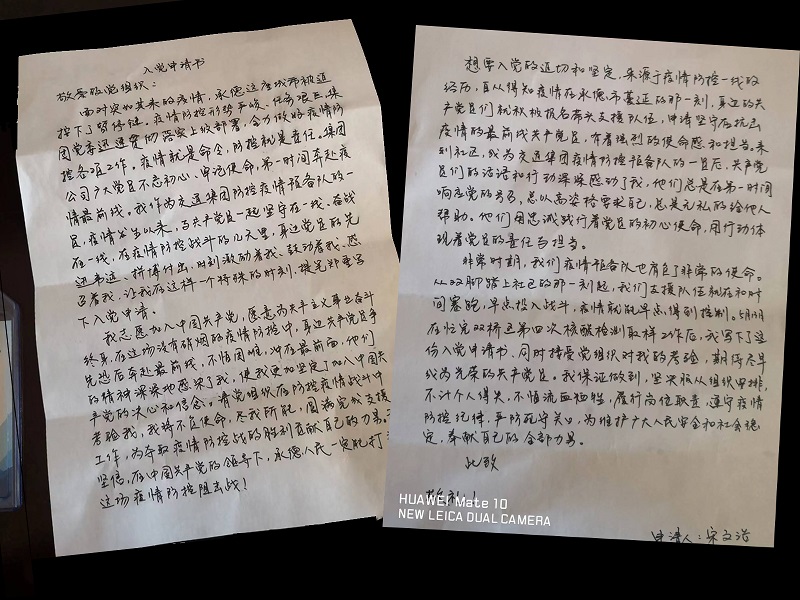 入党申请书
敬爱的党组织：
面对突如其来的疫情，承德这座城市被迫
按下了暂停键。疫情防控形势严峻、任务艰巨，集
团党委迅速贯彻落实上级部署，全力做好疫情防
控各项工作。疫情就是命令，防控就是责任。集团
公司广大党员不忘初心、牢记使命，第一时间奔赴疫
情最前线。我作为交通集团防控疫情预备队的一
员，疫情发生以来，与共产党员一起坚守在一线、奋战
在一线，在疫情防控战斗的几天里，身边党员的先
进事迹、拼搏付出，时刻激励着我、鼓动着我、感
召着我，让我在这样一个特殊的时刻，提笔郑重写
下入党申请。
我志愿加入中国共产党，愿意为共产主义事业奋斗
终身。在这场没有硝烟的疫情防控中，身边共产党员争
先恐后奔赴最前线，不惧困难，冲在最前面，他们
的精神深深地感染了我，使我更加坚定了加入中国共
产党的决心和信念。请党组织在防控疫情战斗中
考验我，我将不负使命，尽我所能，圆满完成支援
工作，为夺取疫情防控战的胜利贡献自己的力量。
坚信，在中国共产党的领导下，承德人民一定能打
这场疫情防控阻击战！
想要入党的迫切和坚定，来源于疫情防控一线的
经历，自从得知疫情在承德市蔓延的那一刻，身边的共
产党员们就积极报名带头支援队伍，申请坚守在抗击
疫情的最前线共产党员，有着强烈的使命感和担当。来
到社区，成为交通集团疫情防控预备队的一员后，共产党
员们的话语和行动深深感动了我，他们总是在第一时间
响应党的号召，总以高姿格要求自己，总是无私的给他人
帮助。他们用忠诚践行着党员的初心使命，用行动体
现着党员的责任与担当。
非常时期，我们疫情预备队也肩负了非常的使命。
从双脚踏上社区的那一刻起，我们支援队伍就在和时
间赛跑，早点投入战斗，疫情就能早点得到控制。5月
在忙完双桥区第四次核酸检测取样工作后，我写下了这
份入党申请书、同时接受党组织对我的考验，期待尽早
成为光荣的共产党员。我保证做到，坚决服从组织安排，
不计个人得失，不惜流血牺牲，履行岗位职责，遵守疫情
防控纪律，严防死守关口，为维护广大人民安全和社会稳
定，奉献自己的全部力量。
此致
敬礼！
申请人：宋文浩
HUAWEI Mate 10
NEW LEICA DUAL CAMERA